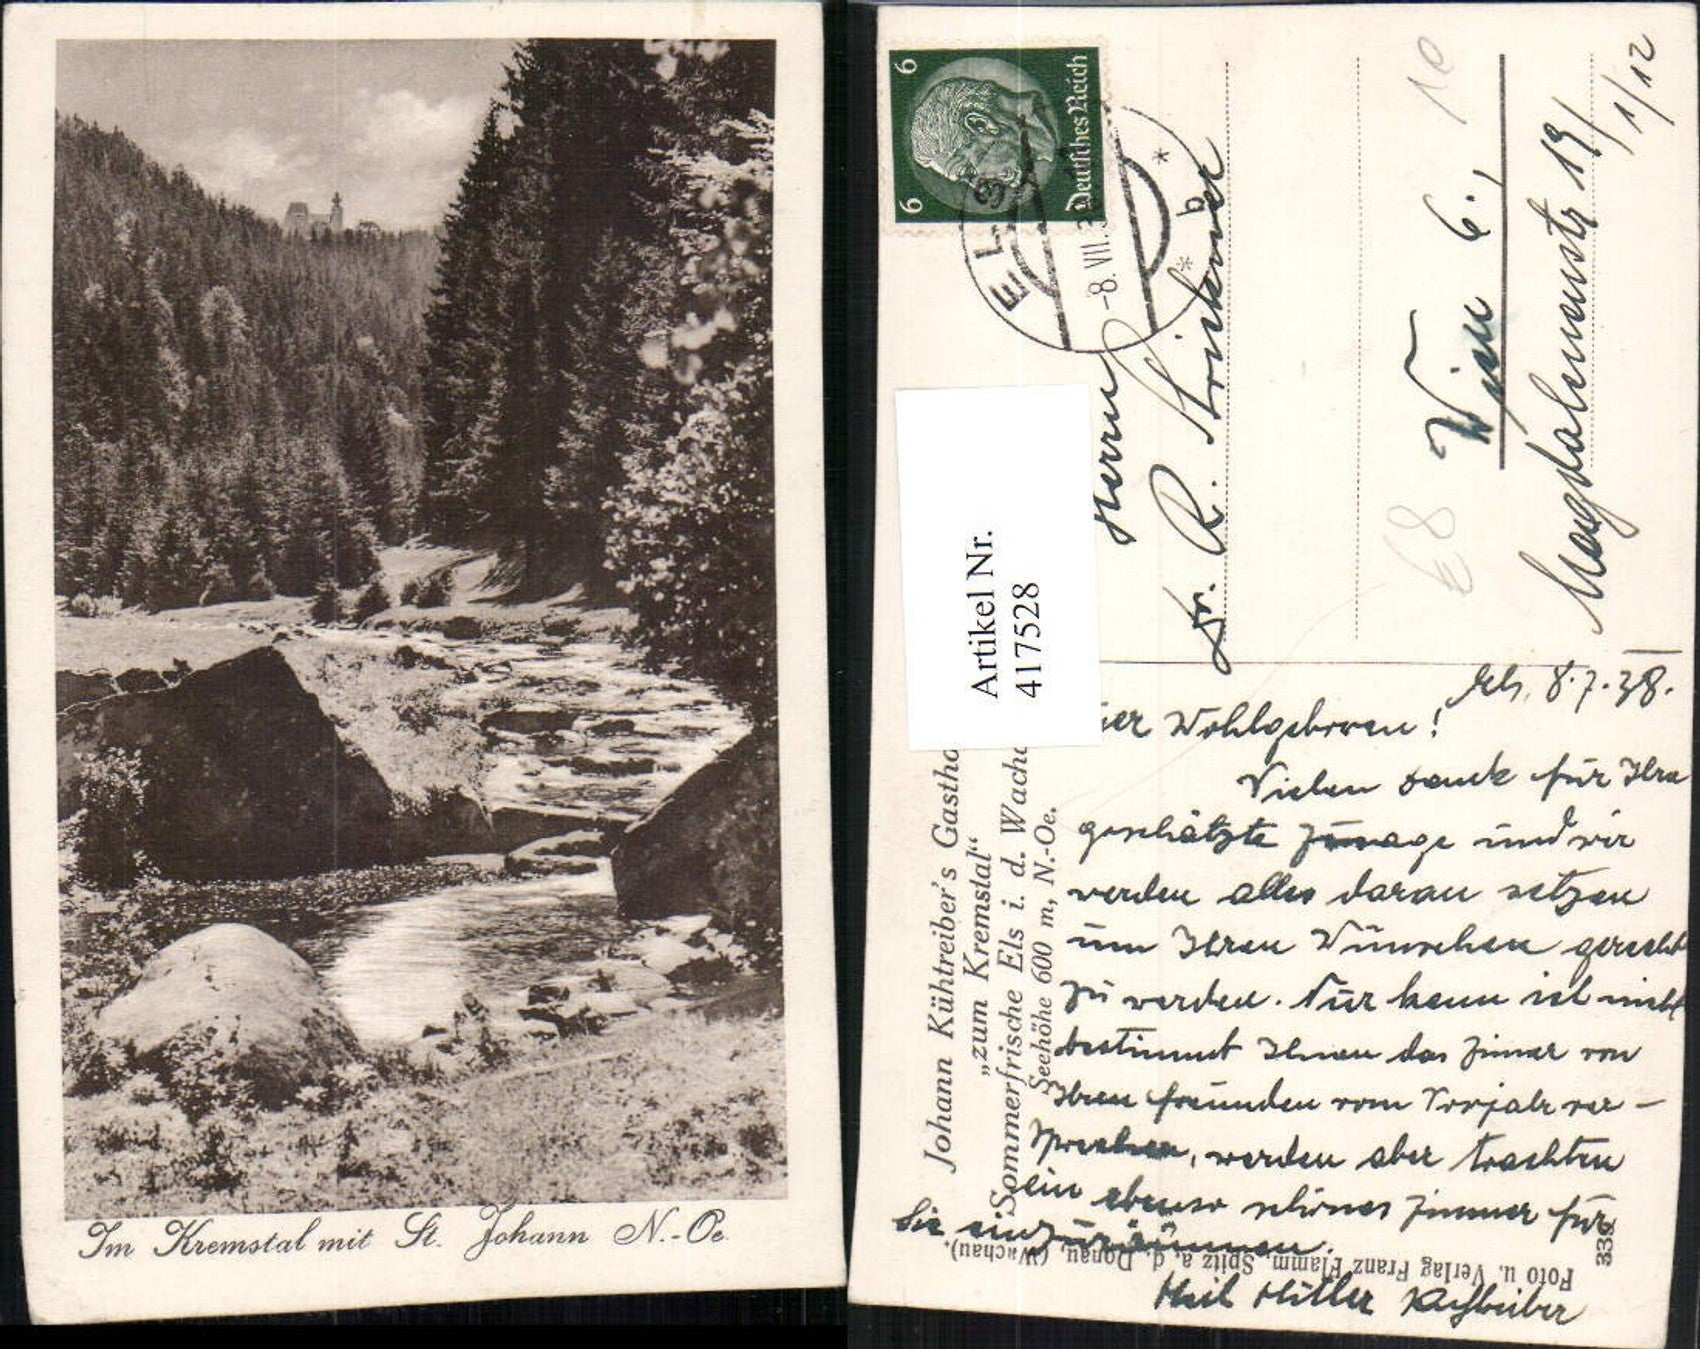 Im Kremstal mit St. Johann N.-Oe.
6
6
Deutsches Reich
ELS
-8. VII. 3
* b *
Artikel Nr.
417528
Herrn
Dr. R.
Wien 6.,
Magdalenenstr 19/
1/12
10
E8
Els, 8.7.38.
Wohlgeboren!
Vielen Dank für Ihre
geschätzte Zusage und wir
werden alles daran setzen
um Ihren Wünschen gerecht
zu werden. Nur kann ich nicht
bestimmt Ihnen das Zimer von
Ihren Freunden vom Vorjahr ver-
sprechen, werden aber trachten
ein ebenso schönes Zimmer für
Sie einzuräumen.
Heil Hitler Kühtreiber
Johann Kühtreiber's Gastho
„zum Kremstal“
Sommerfrische Els i. d. Wacha
Seehöhe 600 m, N.-Oe.
Foto u. Verlag Franz Flamm, Spitz a. d. Donau, (Wachau).